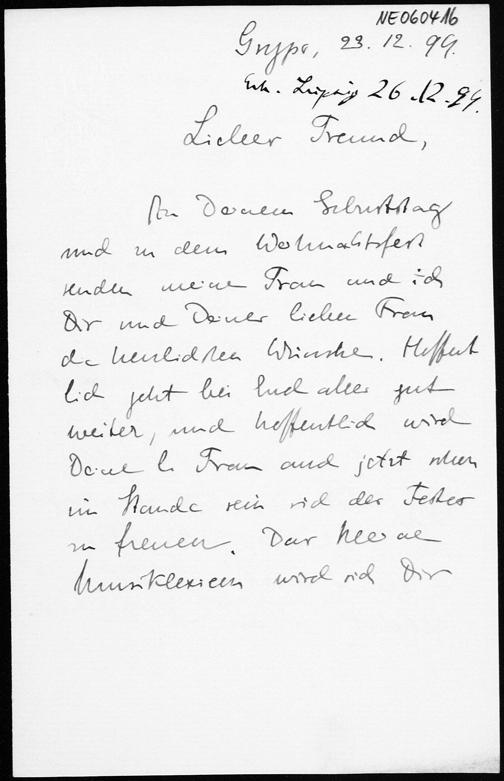 NE060416
Gryps, 23. 12. 94.
Erh. Leipzig 26.12.94.
Lieber Freund,
Zu Deinem Geburtstag
und zu dem Weihnachtsfest
senden meine Frau und ich
Dir und Deiner lieben Frau
die herzlichsten Wünsche. Hoffent
lich geht bei Euch alles gut
weiter, und hoffentlich wird
Deine l. Frau auch jetzt schon
im Stande sein sich des Festes
zu freuen. Das kleine
Musiklexicon wird sich Dir